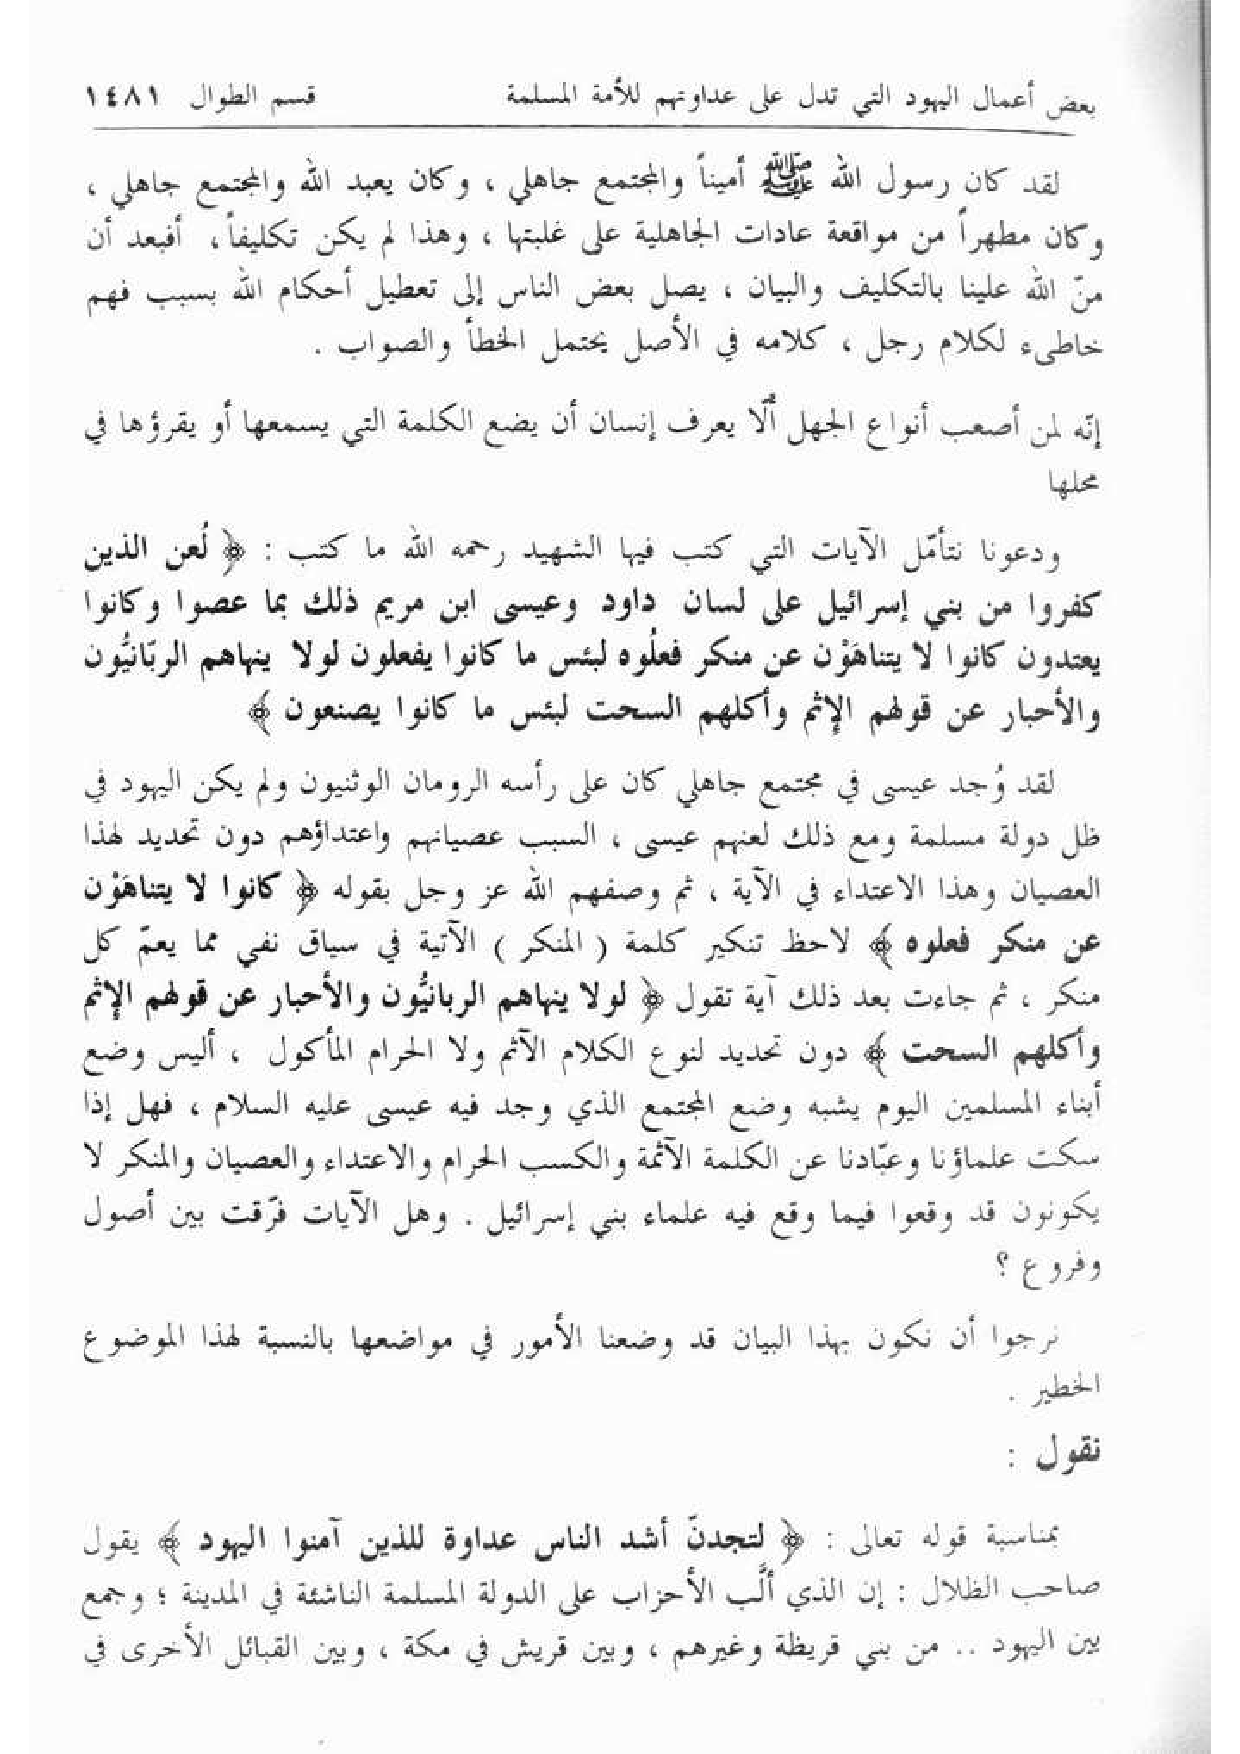 بعض أعمال اليهود التي تدل على عداوتهم للأمة المسلمة قسم الطوال ١٤٨١
لقد كان رسول الله ﷺ أميناً والمجتمع جاهلي ، وكان يعبد الله والمجتمع جاهلي ،
وكان مطهراً من مواقعة عادات الجاهلية على غلبتها ، وهذا لم يكن تكليفاً ، أفبعد أن
منّ الله علينا بالتكليف والبيان ، يصل بعض الناس إلى تعطيل أحكام الله بسبب فهم
خاطىء لكلام رجل ، كلامه في الأصل يحتمل الخطأ والصواب .
إنّه لمن أصعب أنواع الجهل ألّا يعرف إنسان أن يضع الكلمة التي يسمعها أو يقرؤها في
محلها
ودعونا نتأمّل الآيات التي كتب فيها الشهيد رحمه الله ما كتب : ﴿ لُعن الذين
كفروا من بني إسرائيل على لسان داود وعيسى ابن مريم ذلك بما عصوا وكانوا
يعتدون كانوا لا يتناهَوْن عن منكر فعلُوه لبئس ما كانوا يفعلون لولا ينهاهم الربّانيُّون
والأحبار عن قولهم الإثم وأكلهم السحت لبئس ما كانوا يصنعون ﴾
لقد وُجد عيسى في مجتمع جاهلي كان على رأسه الرومان الوثنيون ولم يكن اليهود في
ظل دولة مسلمة ومع ذلك لعنهم عيسى ، السبب عصيانهم واعتداؤهم دون تحديد لهذا
العصيان وهذا الاعتداء في الآية ، ثم وصفهم الله عز وجل بقوله ﴿ كانوا لا يتناهَوْن
عن منكر فعلوه ﴾ لاحظ تنكير كلمة ( المنكر ) الآتية في سياق نفي مما يعمّ كل
منكر ، ثم جاءت بعد ذلك آية تقول ﴿ لولا ينهاهم الربانيُّون والأحبار عن قولهم الإثم
وأكلهم السحت ﴾ دون تحديد لنوع الكلام الآثم ولا الحرام المأكول ، أليس وضع
أبناء المسلمين اليوم يشبه وضع المجتمع الذي وجد فيه عيسى عليه السلام ، فهل إذا
سكت علماؤنا وعبّادنا عن الكلمة الآثمة والكسب الحرام والاعتداء والعصيان والمنكر لا
يكونون قد وقعوا فيما وقع فيه علماء بني إسرائيل . وهل الآيات فرّقت بين أصول
وفروع ؟
نرجوا أن نكون بهذا البيان قد وضعنا الأمور في مواضعها بالنسبة لهذا الموضوع
الخطير .
نقول :
بمناسبة قوله تعالى : ﴿ لتجدنّ أشد الناس عداوة للذين آمنوا اليهود ﴾ يقول
صاحب الظلال : إن الذي ألَّب الأحزاب على الدولة المسلمة الناشئة في المدينة ؛ وجمع
بين اليهود .. من بني قريظة وغيرهم ، وبين قريش في مكة ، وبين القبائل الأخرى في